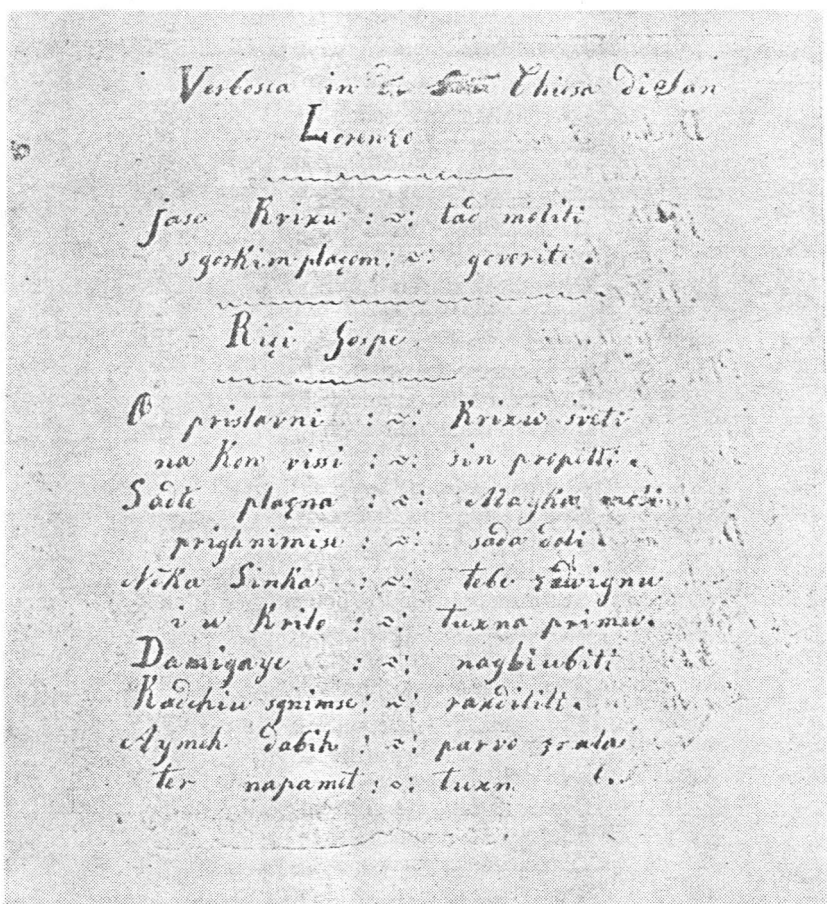 Verbosca in Chiesa di San
Lorenzo
jaso Krixu :~: tad moliti
s gorkim plaçom :~: govoriti.
Riçi Gospe
O prislavni :~: Krixu sveti
na kom vissi :~: sin propetti.
Sadte plaçna :~: Mayka
prighnimisu :~: sada doli
Neka Sinka :~: tebe zdvignu
i u Krilo :~: tuxna primu.
Damigaye :~: nagbiubiti
Kadchiu sgnimse :~: razdiliti.
Aymeh dabih :~: parvo
ter napamet :~: tuxn